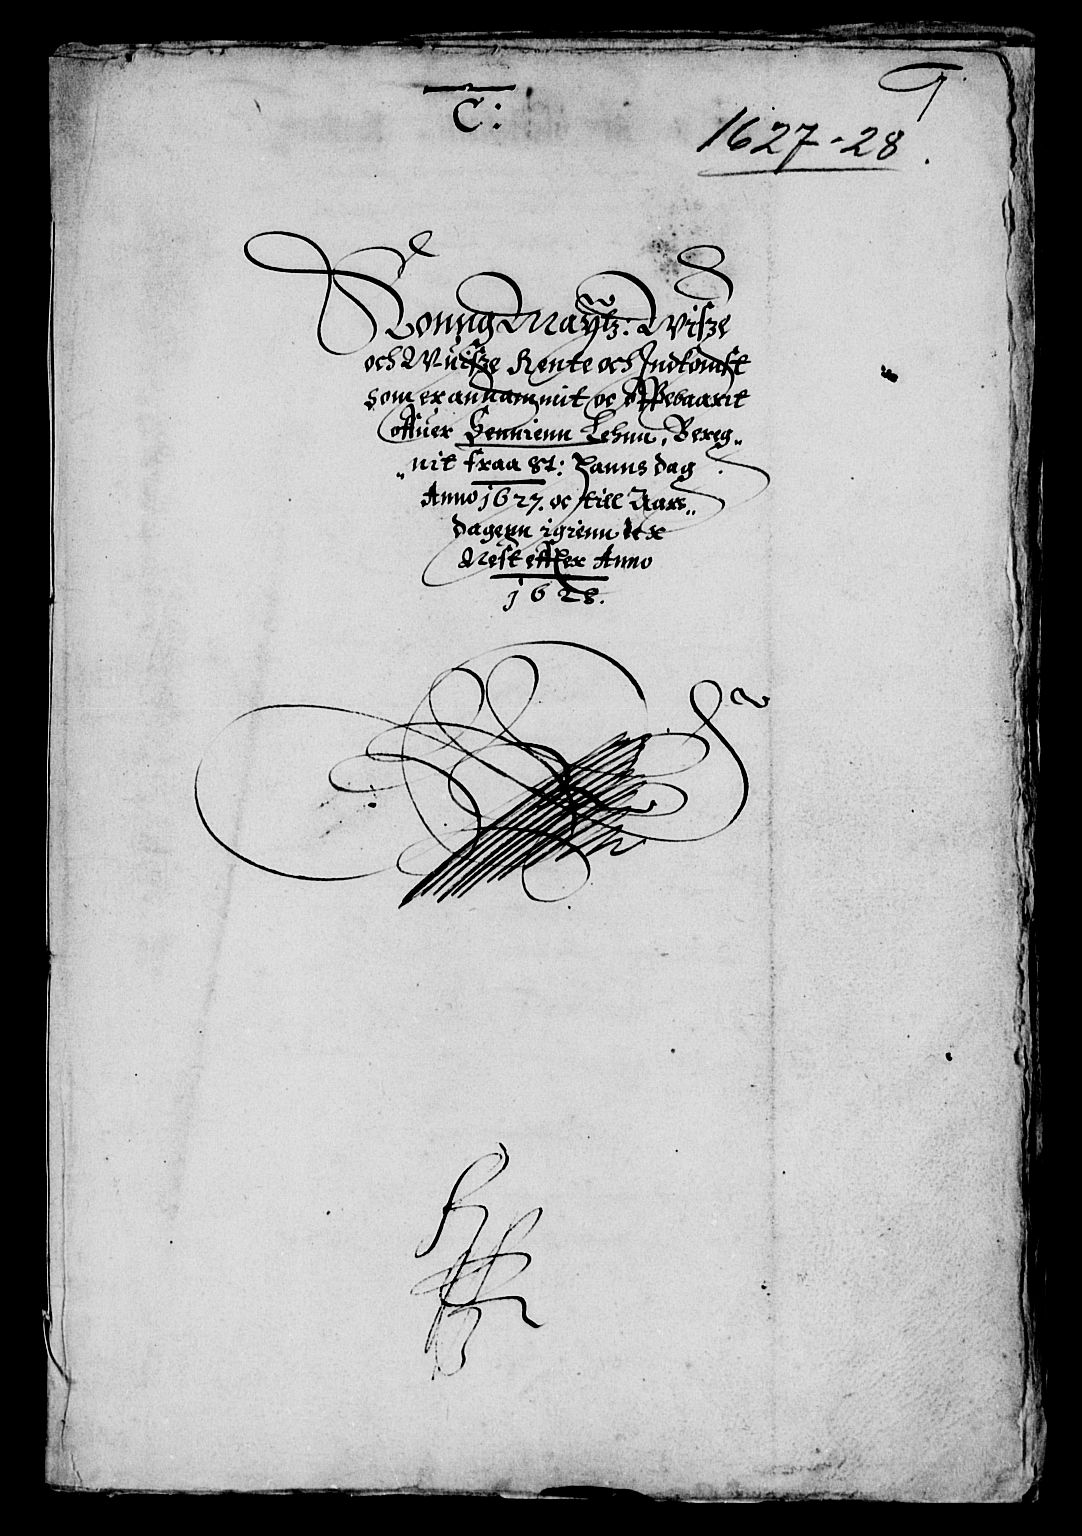 C:
1627-28.
Konng Maytz: Visze
och Wuisze Rente och Indkomst
som er anammit oc oppebaarit
offuer Sennienn Lehnn, Bereg„
„nit fraa St: Hanns dag
Anno 1627. oc till Aars„
dagenn igienn
Nest effter Anno
1628.